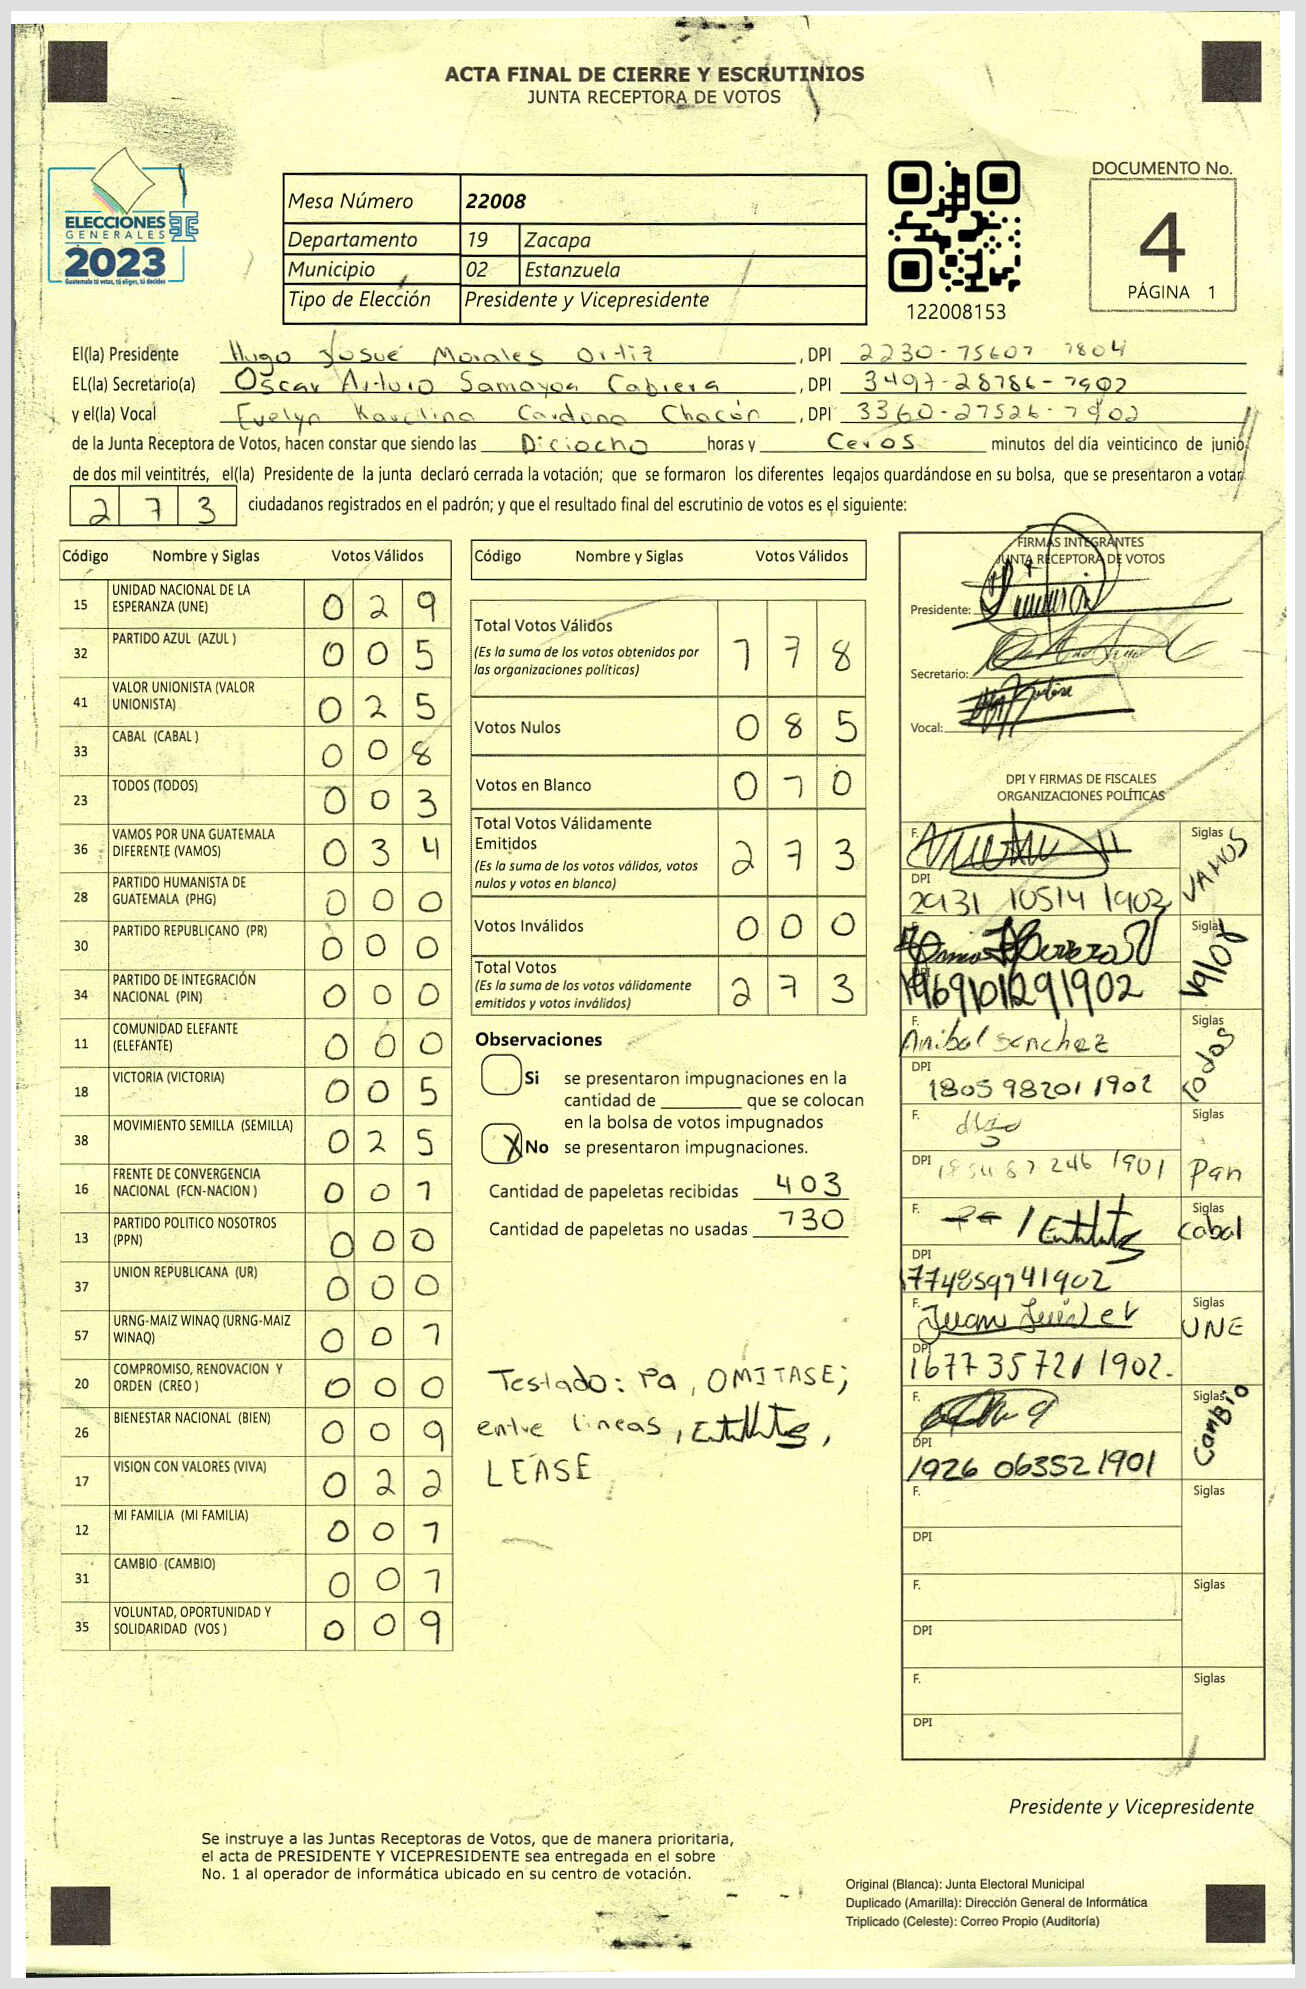 ACTA FINAL DE CIERRE Y ESCRUTINIOS
JUNTA RECEPTORA DE VOTOS
ELECCIONES
GENERALES
2023
Guatemala tú votas, tú eliges, tú decides
Mesa Número 22008
Departamento 19 Zacapa
Municipio 02 Estanzuela
Tipo de Elección Presidente y Vicepresidente
122008153
DOCUMENTO No.
4
PÁGINA 1
El(la) Presidente Hugo Josué Morales Ortiz, DPI 2230-75607 1804
EL(la) Secretario(a) Oscar Arturo Samayoa Cabrera, DPI 3497-28786-1902
y el(la) Vocal Evelyn Karolina Cardona Chacón, DPI 3360-27526-1902
de la Junta Receptora de Votos, hacen constar que siendo las Diciocho horas y Ceros minutos del día veinticinco de junio
de dos mil veintitrés, el(la) Presidente de la junta declaró cerrada la votación; que se formaron los diferentes legajos guardándose en su bolsa, que se presentaron a votar
273 ciudadanos registrados en el padrón; y que el resultado final del escrutinio de votos es el siguiente:
Código Nombre y Siglas Votos Válidos
15 UNIDAD NACIONAL DE LA ESPERANZA (UNE) 0 2 9
32 PARTIDO AZUL (AZUL ) 0 0 5
41 VALOR UNIONISTA (VALOR UNIONISTA) 0 2 5
33 CABAL (CABAL ) 0 0 8
23 TODOS (TODOS) 0 0 3
36 VAMOS POR UNA GUATEMALA DIFERENTE (VAMOS) 0 3 4
28 PARTIDO HUMANISTA DE GUATEMALA (PHG) 0 0 0
30 PARTIDO REPUBLICANO (PR) 0 0 0
34 PARTIDO DE INTEGRACIÓN NACIONAL (PIN) 0 0 0
11 COMUNIDAD ELEFANTE (ELEFANTE) 0 0 0
18 VICTORIA (VICTORIA) 0 0 5
38 MOVIMIENTO SEMILLA (SEMILLA) 0 2 5
16 FRENTE DE CONVERGENCIA NACIONAL (FCN-NACION ) 0 0 1
13 PARTIDO POLITICO NOSOTROS (PPN) 0 0 0
37 UNION REPUBLICANA (UR) 0 0 0
57 URNG-MAIZ WINAQ (URNG-MAIZ WINAQ) 0 0 1
20 COMPROMISO, RENOVACION Y ORDEN (CREO ) 0 0 0
26 BIENESTAR NACIONAL (BIEN) 0 0 9
17 VISION CON VALORES (VIVA) 0 2 2
12 MI FAMILIA (MI FAMILIA) 0 0 1
31 CAMBIO (CAMBIO) 0 0 1
35 VOLUNTAD, OPORTUNIDAD Y SOLIDARIDAD (VOS ) 0 0 9
Código Nombre y Siglas Votos Válidos
Total Votos Válidos 1 7 8
(Es la suma de los votos obtenidos por
las organizaciones políticas)
Votos Nulos 0 8 5
Votos en Blanco 0 1 0
Total Votos Válidamente
Emitidos 2 7 3
(Es la suma de los votos válidos, votos
nulos y votos en blanco)
Votos Inválidos 0 0 0
Total Votos 2 7 3
(Es la suma de los votos válidamente
emitidos y votos inválidos)
Observaciones
Si se presentaron impugnaciones en la
cantidad de ________ que se colocan
en la bolsa de votos impugnados
X No se presentaron impugnaciones.
Cantidad de papeletas recibidas 403
Cantidad de papeletas no usadas 130
Testado: Pa, OMITASE;
entre lineas,
LEASE
FIRMAS INTEGRANTES
JUNTA RECEPTORA DE VOTOS
Presidente:
Secretario:
Vocal:
DPI Y FIRMAS DE FISCALES
ORGANIZACIONES POLÍTICAS
F. Siglas VAMOS
DPI 2931 10514 1902
F. Siglas Valor
DPI 1969101291902
F. Anibal Sanchez Siglas Todos
DPI 1805 98201 1902
F. Siglas Pan
DPI
F. Siglas Cabal
DPI 1774859741902
F. Siglas UNE
DPI 1677 35721 1902.
F. Siglas Cambio
DPI 1926 06352 1901
F. Siglas
DPI
F. Siglas
DPI
F. Siglas
DPI
Presidente y Vicepresidente
Se instruye a las Juntas Receptoras de Votos, que de manera prioritaria,
el acta de PRESIDENTE Y VICEPRESIDENTE sea entregada en el sobre
No. 1 al operador de informática ubicado en su centro de votación.
Original (Blanca): Junta Electoral Municipal
Duplicado (Amarilla): Dirección General de Informática
Triplicado (Celeste): Correo Propio (Auditoría)